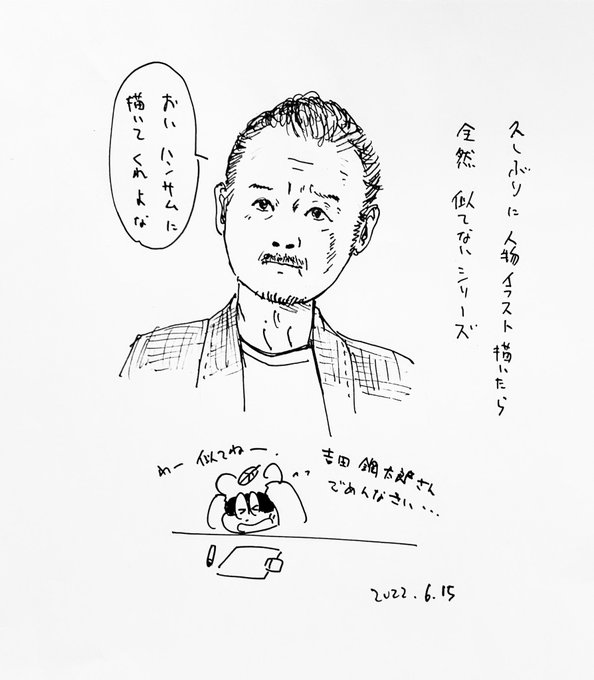 久しぶりに 人物イラスト描いたら
全然 似てないシリーズ
おい ハンサムに
描いて くれよな
わー 似てねー.
吉田 鋼太郎さん
ごめんなさい...
2022.6.15